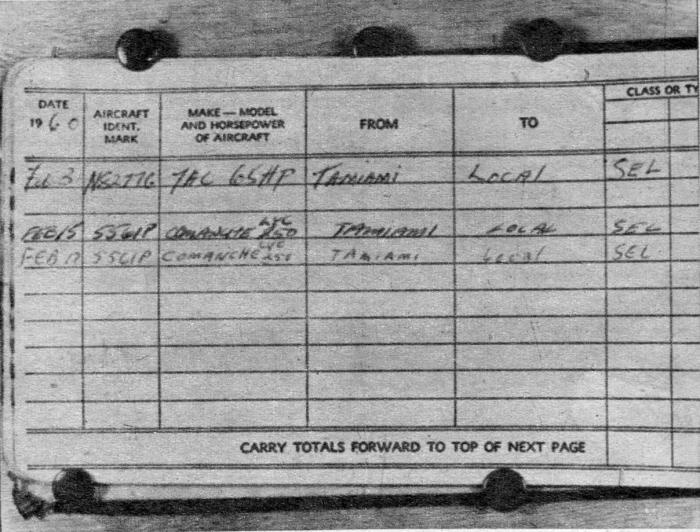 DATE AIRCRAFT IDENT. MARK MAKE — MODEL AND HORSEPOWER OF AIRCRAFT FROM TO CLASS OR TY
1960
Feb 3 7AC 65HP TAMIAMI LOCAL SEL
FEB 15 5561P COMANCHE LYC 250 TAMIAMI LOCAL SEL
FEB 17 5561P COMANCHE LYC 250 TAMIAMI Local SEL
CARRY TOTALS FORWARD TO TOP OF NEXT PAGE